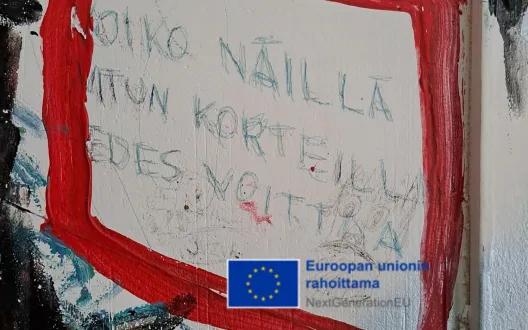 OIKO NÄILLÄ
VITUN KORTEILLA
EDES VOITTAA
Euroopan unionin
rahoittama
NextGenerationEU